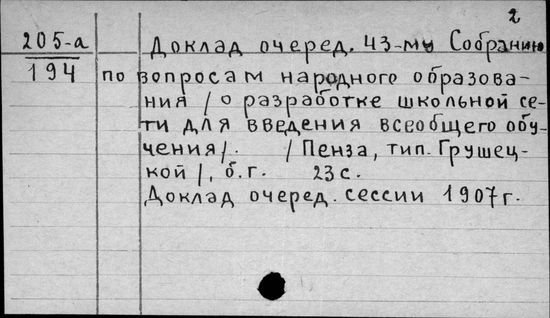 2
205-а Доклад очеред. 43-му Собранию
194 по вопросам народного образова-
ния / о разработке школьной се-
ти для введения всеобщего обу-
чения/. / Пенза, тип. Грушец-
кой /, б.г. 23 с.
Доклад очеред. сессии 1907 г.